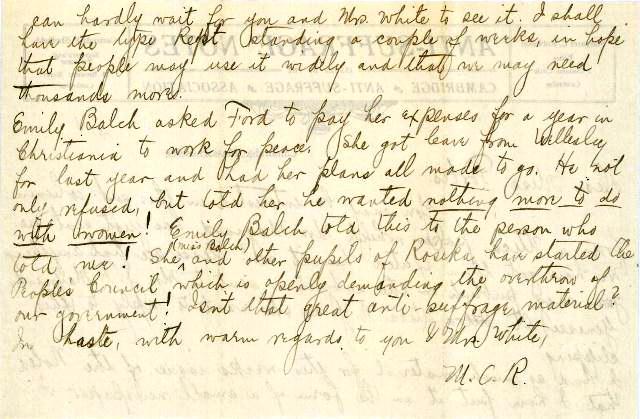 can hardly wait for you and Mrs. White to see it. I shall
have the type kept standing a couple of weeks, in hope
that people may use it widely and that we may need
thousands more.
Emily Balch asked Ford to pay her expenses for a year in
Christiania to work for peace. She got leave from Wellesley
for last year and had her plans all made to go. He not
only refused, but told her he wanted nothing more to do
with women! Emily Balch told this to the person who
told me! She (Miss Balch) and other pupils of Rosika, have started the
People's Council which is openly demanding the overthrow of
our government! Isn't that great anti-suffrage material?
In haste, with warm regards to you & Mrs. White,
M. C. R.
ANTI-SUFFRAGE NOTES
CAMBRIDGE ANTI-SUFFRAGE ASSOCIATION